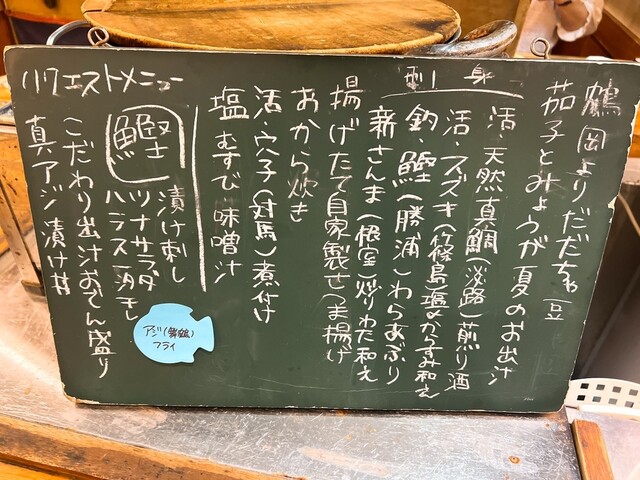 鶴岡よりだだちゃ豆
茄子とみょうが夏のお出汁
刺身
活・天然真鯛(淡路)煎り酒
活・スズキ(篠島)塩からすみ和え
釣・鰹(勝浦)わらあぶり
新さんま(根室)炒りわた和え
揚げたて自家製さつま揚げ
おから炊き
活・穴子(対馬)煮付け
塩むすび味噌汁
リクエストメニュー
鰹
漬け刺し
ツナサラダ
ハラス一汐干し
こだわり出汁おでん盛り
真アジ漬け丼
アジ(舞鶴)
フライ